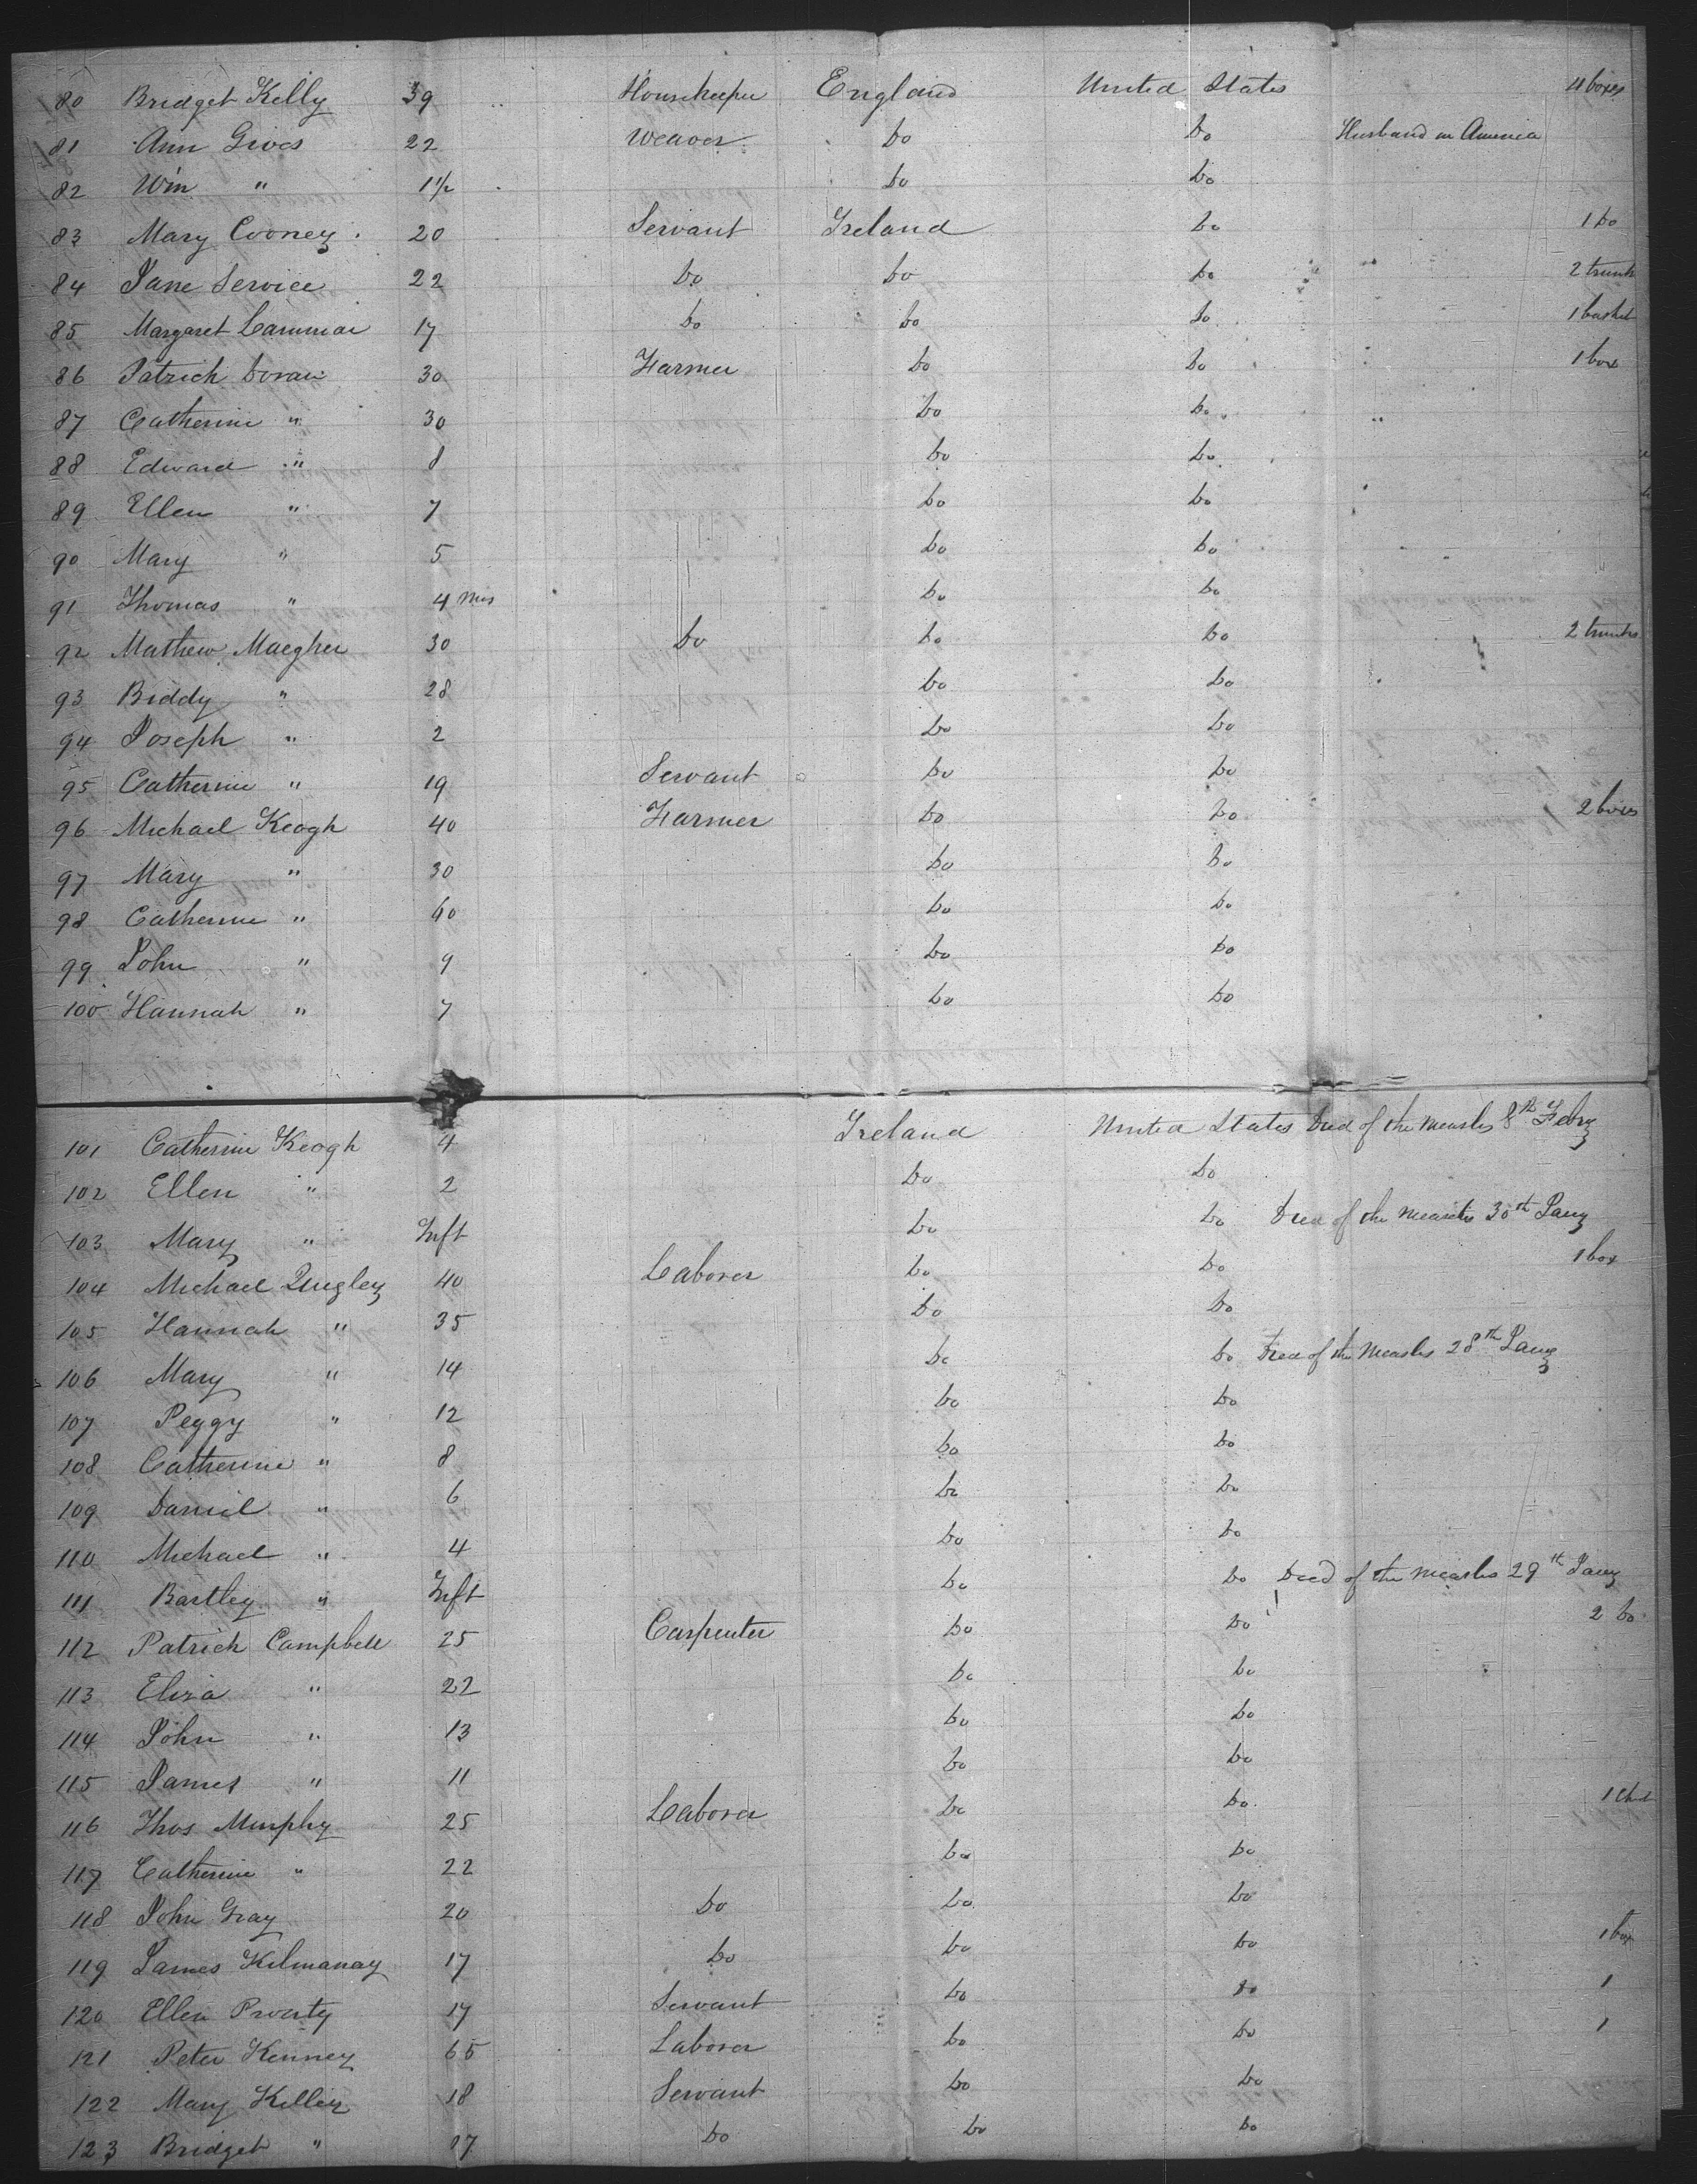 80 Bridget Kelly 39 Housekeeper England United States 4 boxes
81 Ann Gives 22 Weaver Do Do Husband in America
82 Wm " 1½ Do Do
83 Mary Cooney 20 Servant Ireland Do 1 Do
84 Jane Service 22 Do Do Do 2 trunks
85 Margaret 17 Do Do Do 1 basket
86 Patrick Doran 30 Farmer Do Do 1 box
87 Catherine " 30 Do Do
88 Edward " 8 Do Do
89 Ellen " 7 Do Do
90 Mary " 5 Do Do
91 Thomas " 4 Mos Do Do
92 Mathew Maegher 30 Do Do Do 2 trunks
93 Biddy " 28 Do Do
94 Joseph " 2 Do Do
95 Catherine " 19 Servant Do Do
96 Michael Keogh 40 Farmer Do Do 2 boxes
97 Mary " 30 Do Do
98 Catherine " 60 Do Do
99 John " 9 Do Do
100 Hannah " 7 Do Do
101 Catherine Keogh 4 Ireland United States Died of the measles 8th Feby
102 Ellen " 2 Do Do
103 Mary " Inft Do Do Died of the measles 30th Jany
104 Michael Quigley 40 Laborer Do Do 1 box
105 Hannah " 35 Do Do
106 Mary " 14 Do Do Died of the Measles 28th Jany
107 Peggy " 12 Do Do
108 Catherine " 8 Do Do
109 Daniel " 6 Do Do
110 Michael " 4 Do Do
111 Bartley " Inft Do Do Died of the measles 29th Jany
112 Patrick Campbell 25 Carpenter Do Do 2 Do
113 Eliza " 22 Do Do
114 John " 13 Do Do
115 James " 11 Do Do
116 Thos Murphy 25 Laborer Do Do 1
117 Catherine " 22 Do Do
118 John Gray 20 Do Do Do
119 James Kilmanay 17 Do Do Do 1 box
120 Ellen Prverty 17 Servant Do Do 1
121 Peter Kenney 65 Laborer Do Do 1
122 Mary Killey 18 Servant Do Do
123 Bridget " 17 Do Do Do